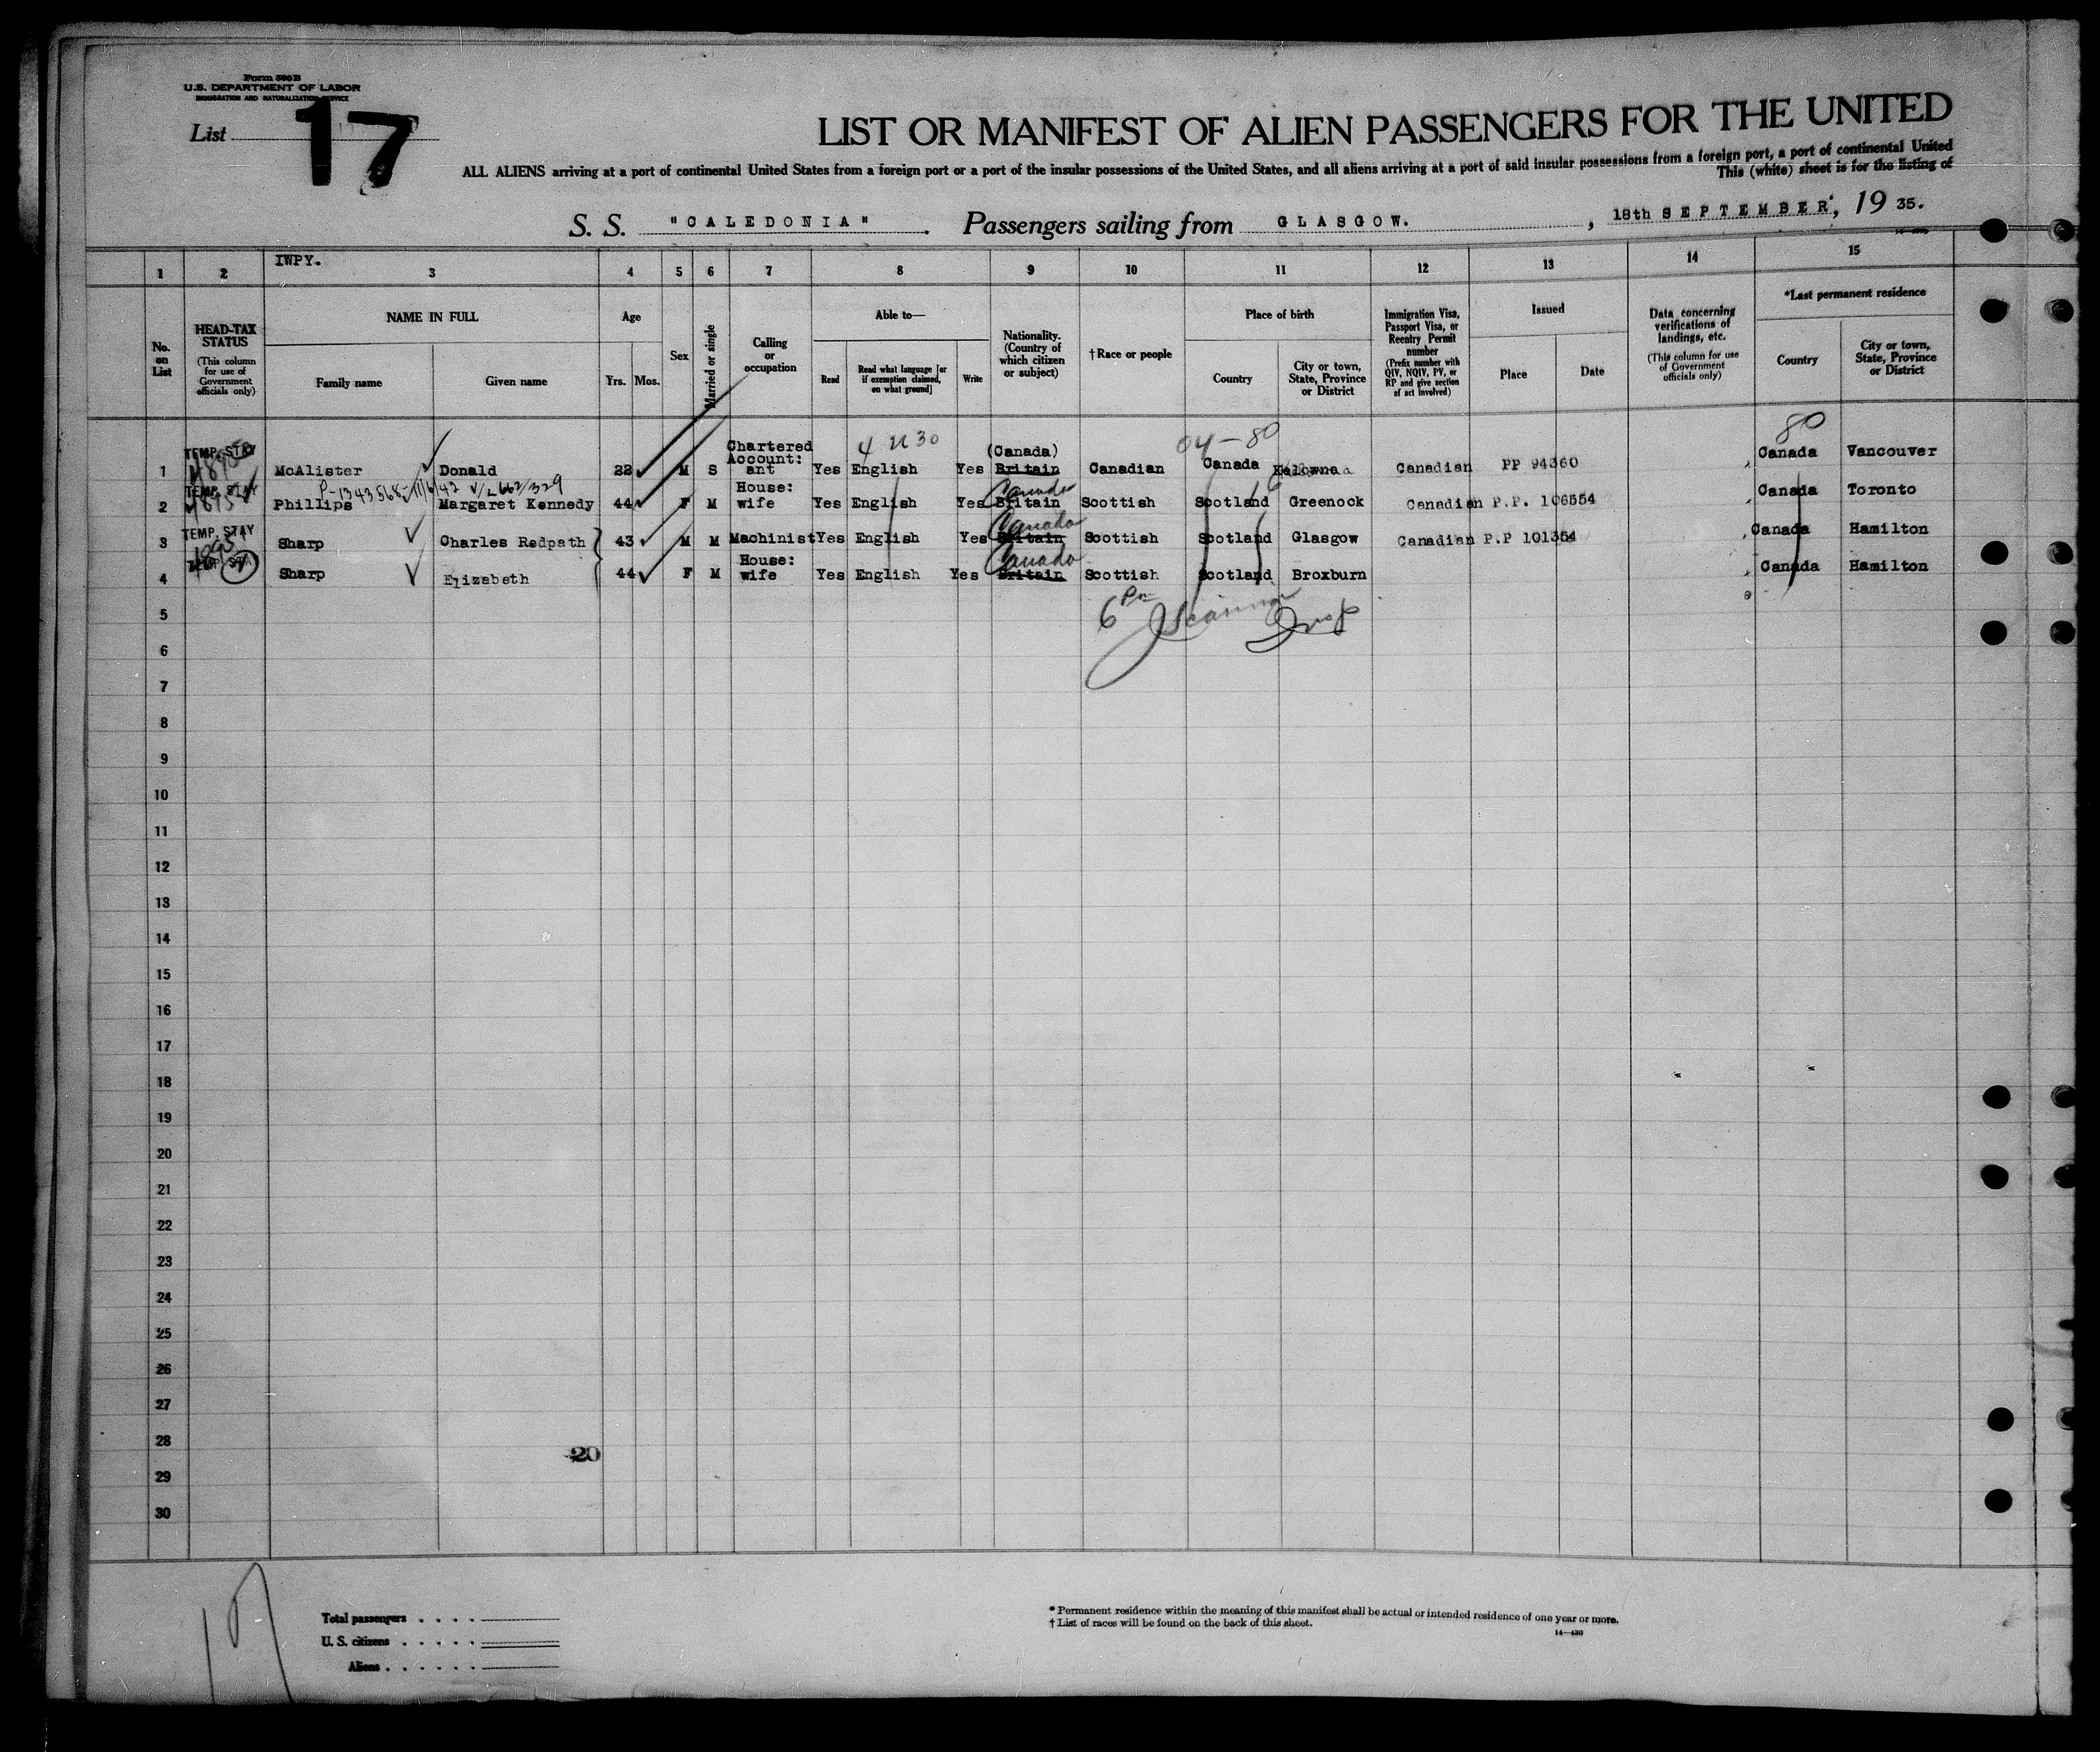 Form 500 B
U.S. DEPARTMENT OF LABOR
IMMIGRATION AND NATURALIZATION SERVICE
List 17
LIST OR MANIFEST OF ALIEN PASSENGERS FOR THE UNITED
ALL ALIENS arriving at a port of continental United States from a foreign port or a port of the insular possessions of the United States, and all aliens arriving at a port of said insular possessions from a foreign port, a port of continental United
This (white) sheet is for the listing of
S. S. "CALEDONIA". Passengers sailing from GLASGOW. , 18th SEPTEMBER, 19 35.
IWPY.
1 2 3 4 5 6 7 8 9 10 11 12 13 14 15
No. on List
HEAD-TAX STATUS (This column for use of Government officials only)
NAME IN FULL Family name Given name
Age Yrs. Mos.
Sex
Married or single
Calling or occupation
Able to— Read Read what language [or if exemption claimed, on what ground] Write
Nationality. (Country of which citizen or subject)
†Race or people
Place of birth Country City or town, State, Province or District
Immigration Visa, Passport Visa, or Reentry Permit number (Prefix number with QIV, NQIV, PV, or RP and give section of act involved)
Issued Place Date
Data concerning verifications of landings, etc. (This column for use of Government officials only)
*Last permanent residence Country City or town, State, Province or District
4 30 04-80 80
1 TEMP. STAY McAlister Donald M S Chartered Account: ant Yes English Yes (Canada) Britain Canadian Canada Kelowna Canadian PP 94360 Canada Vancouver
P-1343568-11/6/42 V/L 662/329
2 TEMP. STAY Phillips Margaret Kennedy 44 F M House: wife Yes English Yes Britain Canada Scottish Scotland Greenock Canadian P.P. 106554 Canada Toronto
3 TEMP. STAY Sharp Charles Redpath 43 M M Machinist Yes English Yes Britain Canada Scottish Scotland Glasgow Canadian P.P 101354 Canada Hamilton
4 Sharp Elizabeth 44 F M House: wife Yes English Yes Britain Canada Scottish Scotland Broxburn Canada Hamilton
5 6
Insp
6
7
8
9
10
11
12
13
14
15
16
17
18
19
20
21
22
23
24
25
26
27
28 20
29
30
Total passengers . . . .
U. S. citizens . . . . .
Aliens . . . . . .
* Permanent residence within the meaning of this manifest shall be actual or intended residence of one year or more.
† List of races will be found on the back of this sheet.
14—430